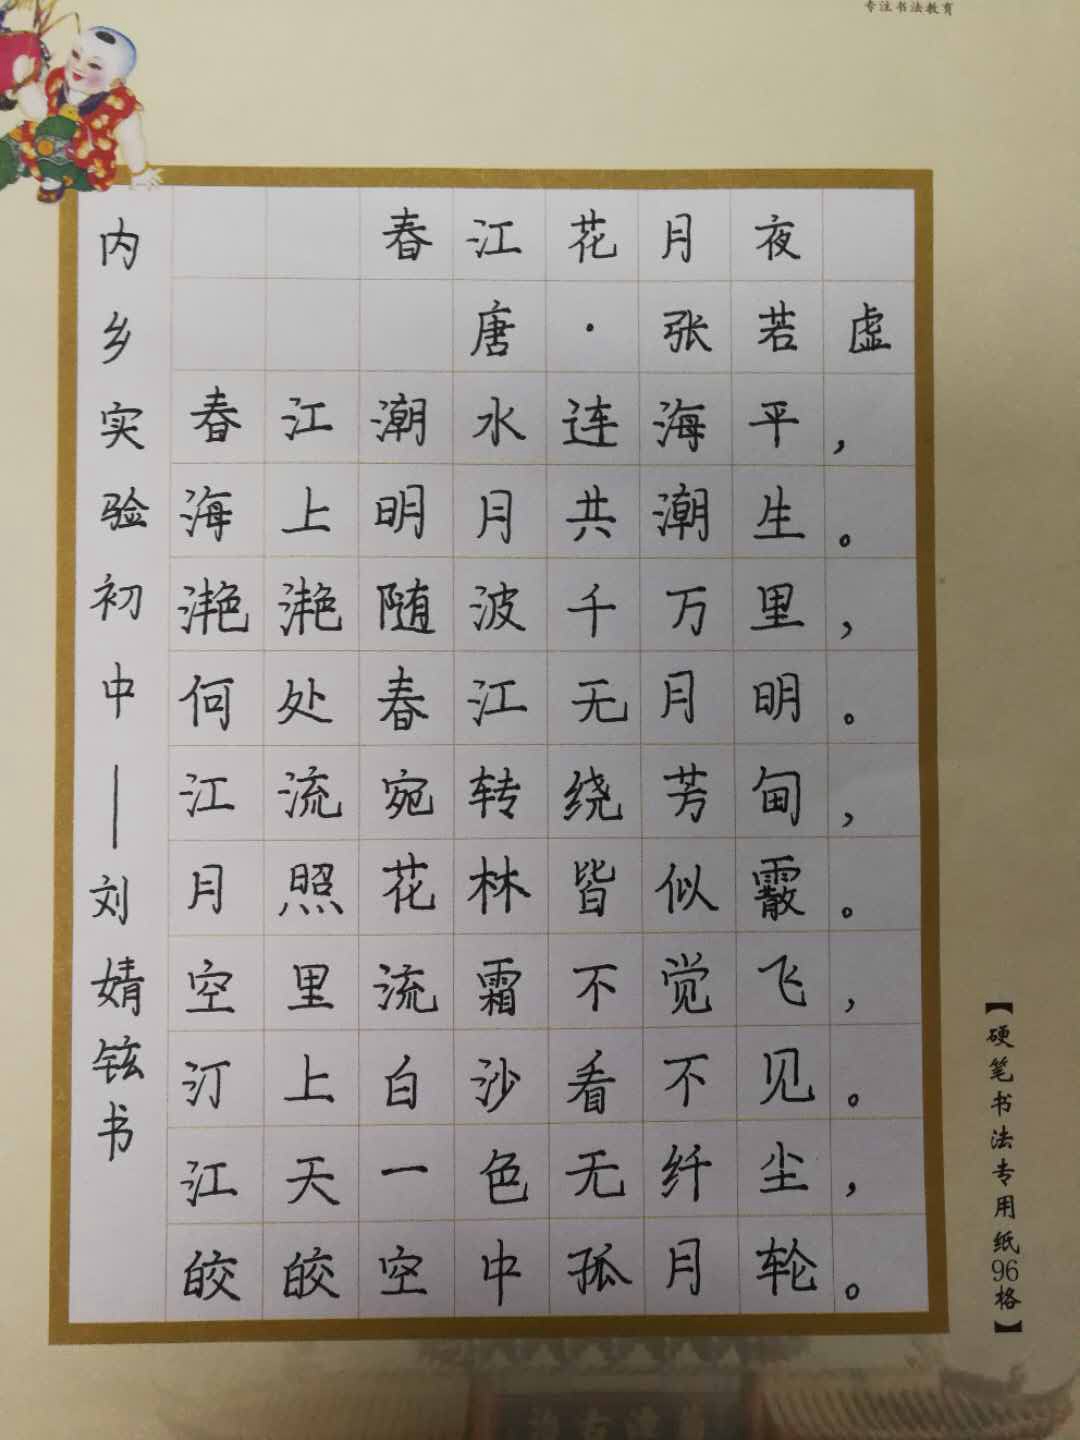 专注书法教育
春江花月夜
唐·张若虚
春江潮水连海平，
海上明月共潮生。
滟滟随波千万里，
何处春江无月明。
江流宛转绕芳甸，
月照花林皆似霰。
空里流霜不觉飞，
汀上白沙看不见。
江天一色无纤尘，
皎皎空中孤月轮。
内乡实验初中—刘婧铉书
【硬笔书法专用纸96格】